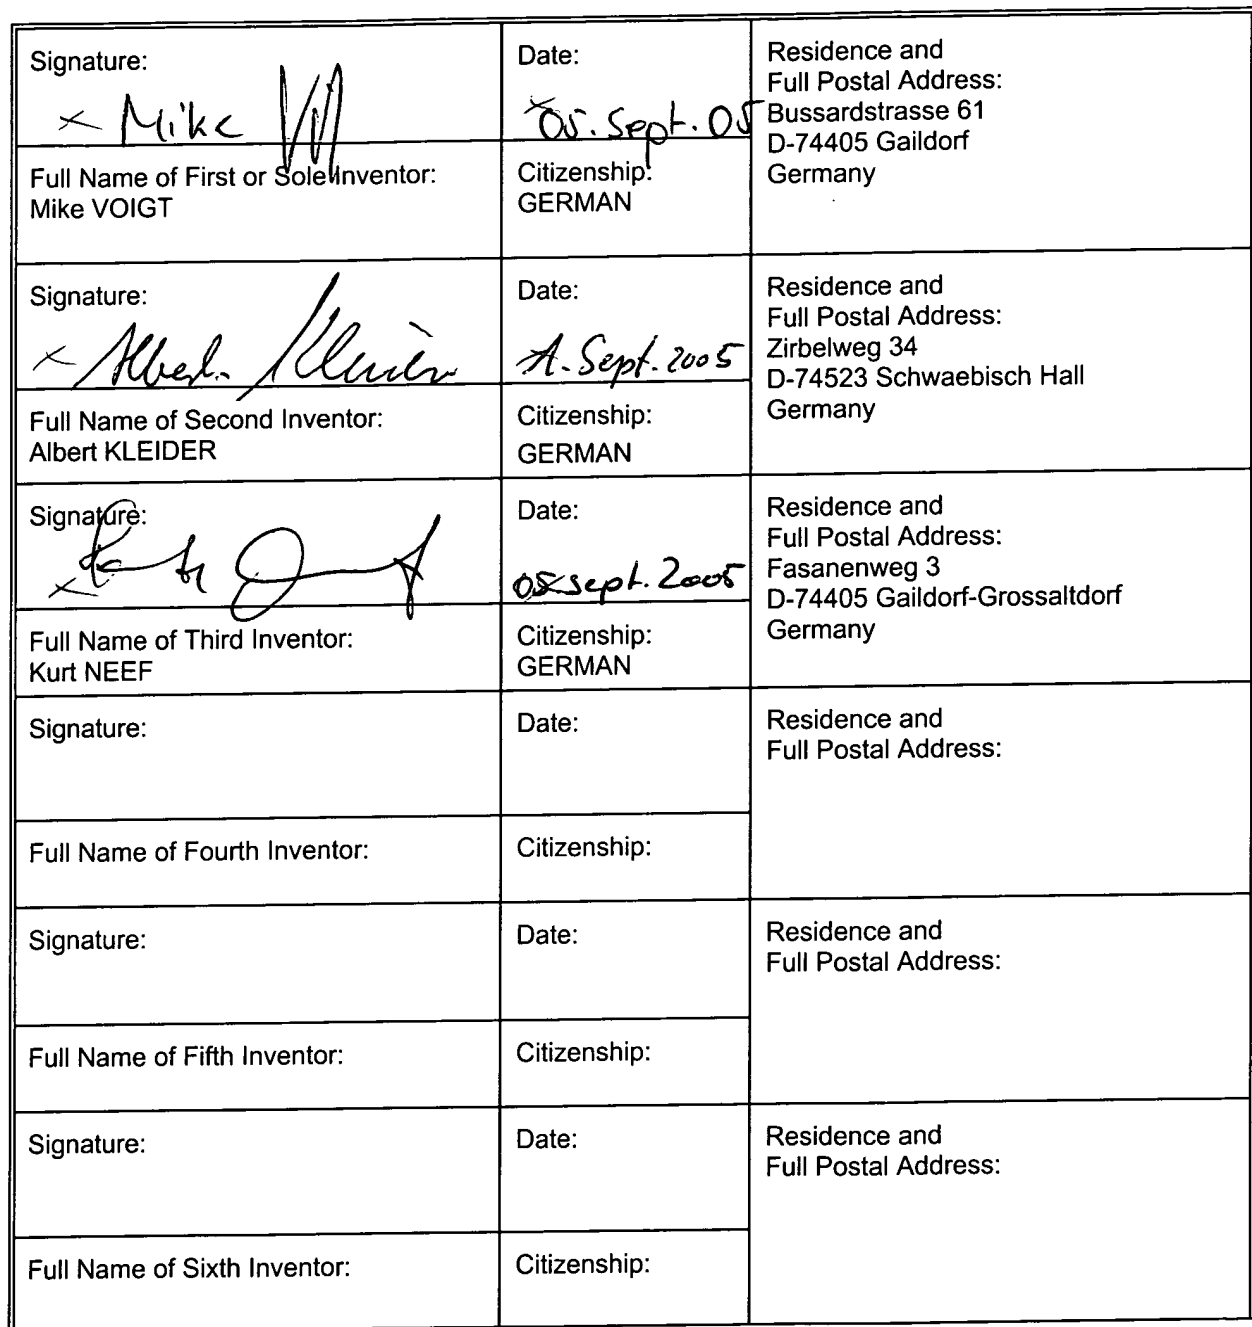 Signature:
× Mike
Date:
05. Sept. 05
Residence and
Full Postal Address:
Bussardstrasse 61
D-74405 Gaildorf
Germany
Full Name of First or Sole Inventor:
Mike VOIGT
Citizenship:
GERMAN
Signature:
× Albert Kleider
Date:
Sept. 2005
Residence and
Full Postal Address:
Zirbelweg 34
D-74523 Schwaebisch Hall
Germany
Full Name of Second Inventor:
Albert KLEIDER
Citizenship:
GERMAN
Signature:
×
Date:
05. Sept. 2005
Residence and
Full Postal Address:
Fasanenweg 3
D-74405 Gaildorf-Grossaltdorf
Germany
Full Name of Third Inventor:
Kurt NEEF
Citizenship:
GERMAN
Signature:
Date:
Residence and
Full Postal Address:
Full Name of Fourth Inventor:
Citizenship:
Signature:
Date:
Residence and
Full Postal Address:
Full Name of Fifth Inventor:
Citizenship:
Signature:
Date:
Residence and
Full Postal Address:
Full Name of Sixth Inventor:
Citizenship: